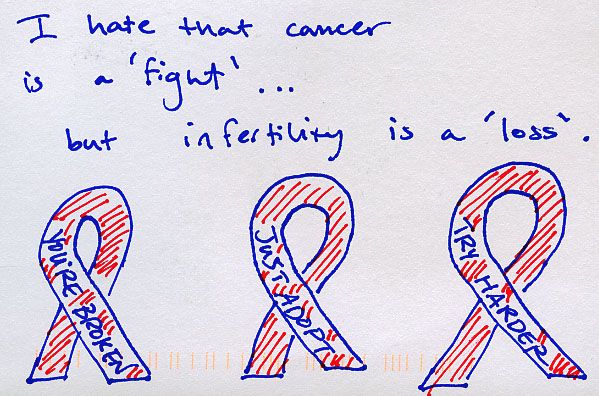 I hate that cancer
is a 'fight'...
but infertility is a 'loss'.
YOU'RE BROKEN
JUST ADOPT
TRY HARDER